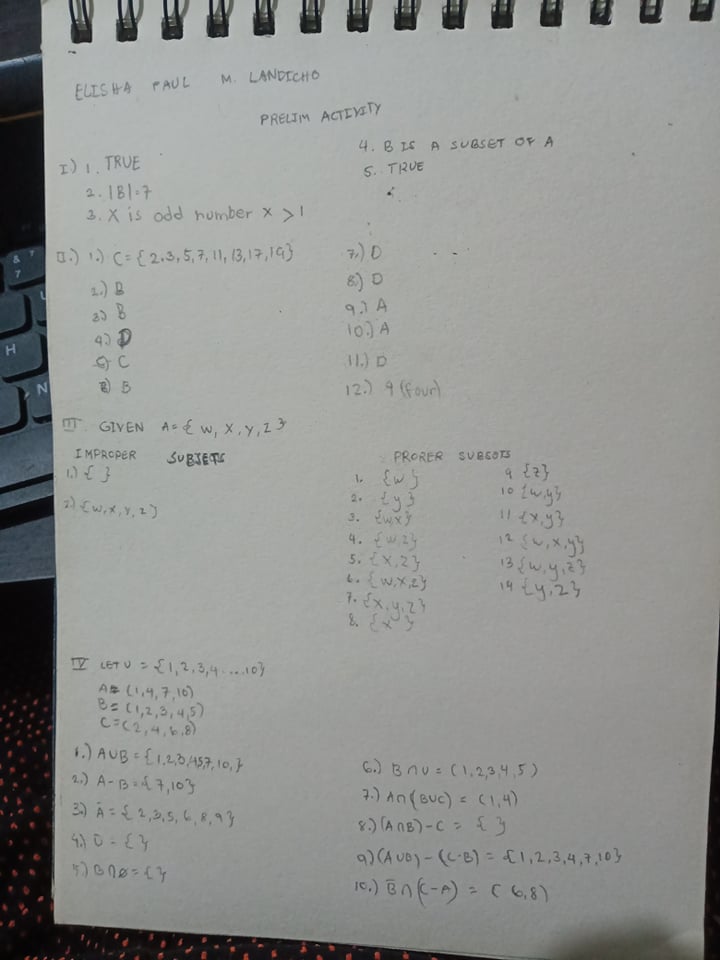 ELISHA PAUL M. LANDICHO
PRELIM ACTIVITY
I) 1. TRUE
2. |B|=7
3. X is odd number x > 1
4. B IS A SUBSET OF A
5. TRUE
II.) 1.) C = { 2,3,5,7,11,13,17,19}
2.) B
3) B
4) D
5) C
6) B
7.) D
8.) D
9.) A
10.) A
11.) D
12.) 4 (four)
III. GIVEN A = { W, X, Y, Z }
IMPROPER SUBSETS
1.) { }
2.) {W, X, Y, Z}
PRORER SUBSOTS
1. {w}
2. {y}
3. {w,x}
4. {w,z}
5. {x,z}
6. {w,x,z}
7. {x,y,z}
8. {x}
9 {z}
10 {w,y}
11 {x,y}
12 {w,x,y}
13 {w,y,z}
14 {y,z}
IV LET U = {1,2,3,4 ....10}
A = (1,4,7,10)
B = (1,2,3,4,5)
C = (2,4,6,8)
1.) A∪B = {1,2,3,4,5,7,10,}
2.) A-B = {7,10}
3.) A̅ = { 2,3,5,6,8,9}
4.) U̅ = { }
5.) B∩∅ = { }
6.) B∩U = (1,2,3,4,5)
7.) A∩(B∪C) = (1,4)
8.) (A∩B)-C = { }
9) (A∪B) - (C-B) = {1,2,3,4,7,10}
10.) B̅∩(C-A) = (6,8)